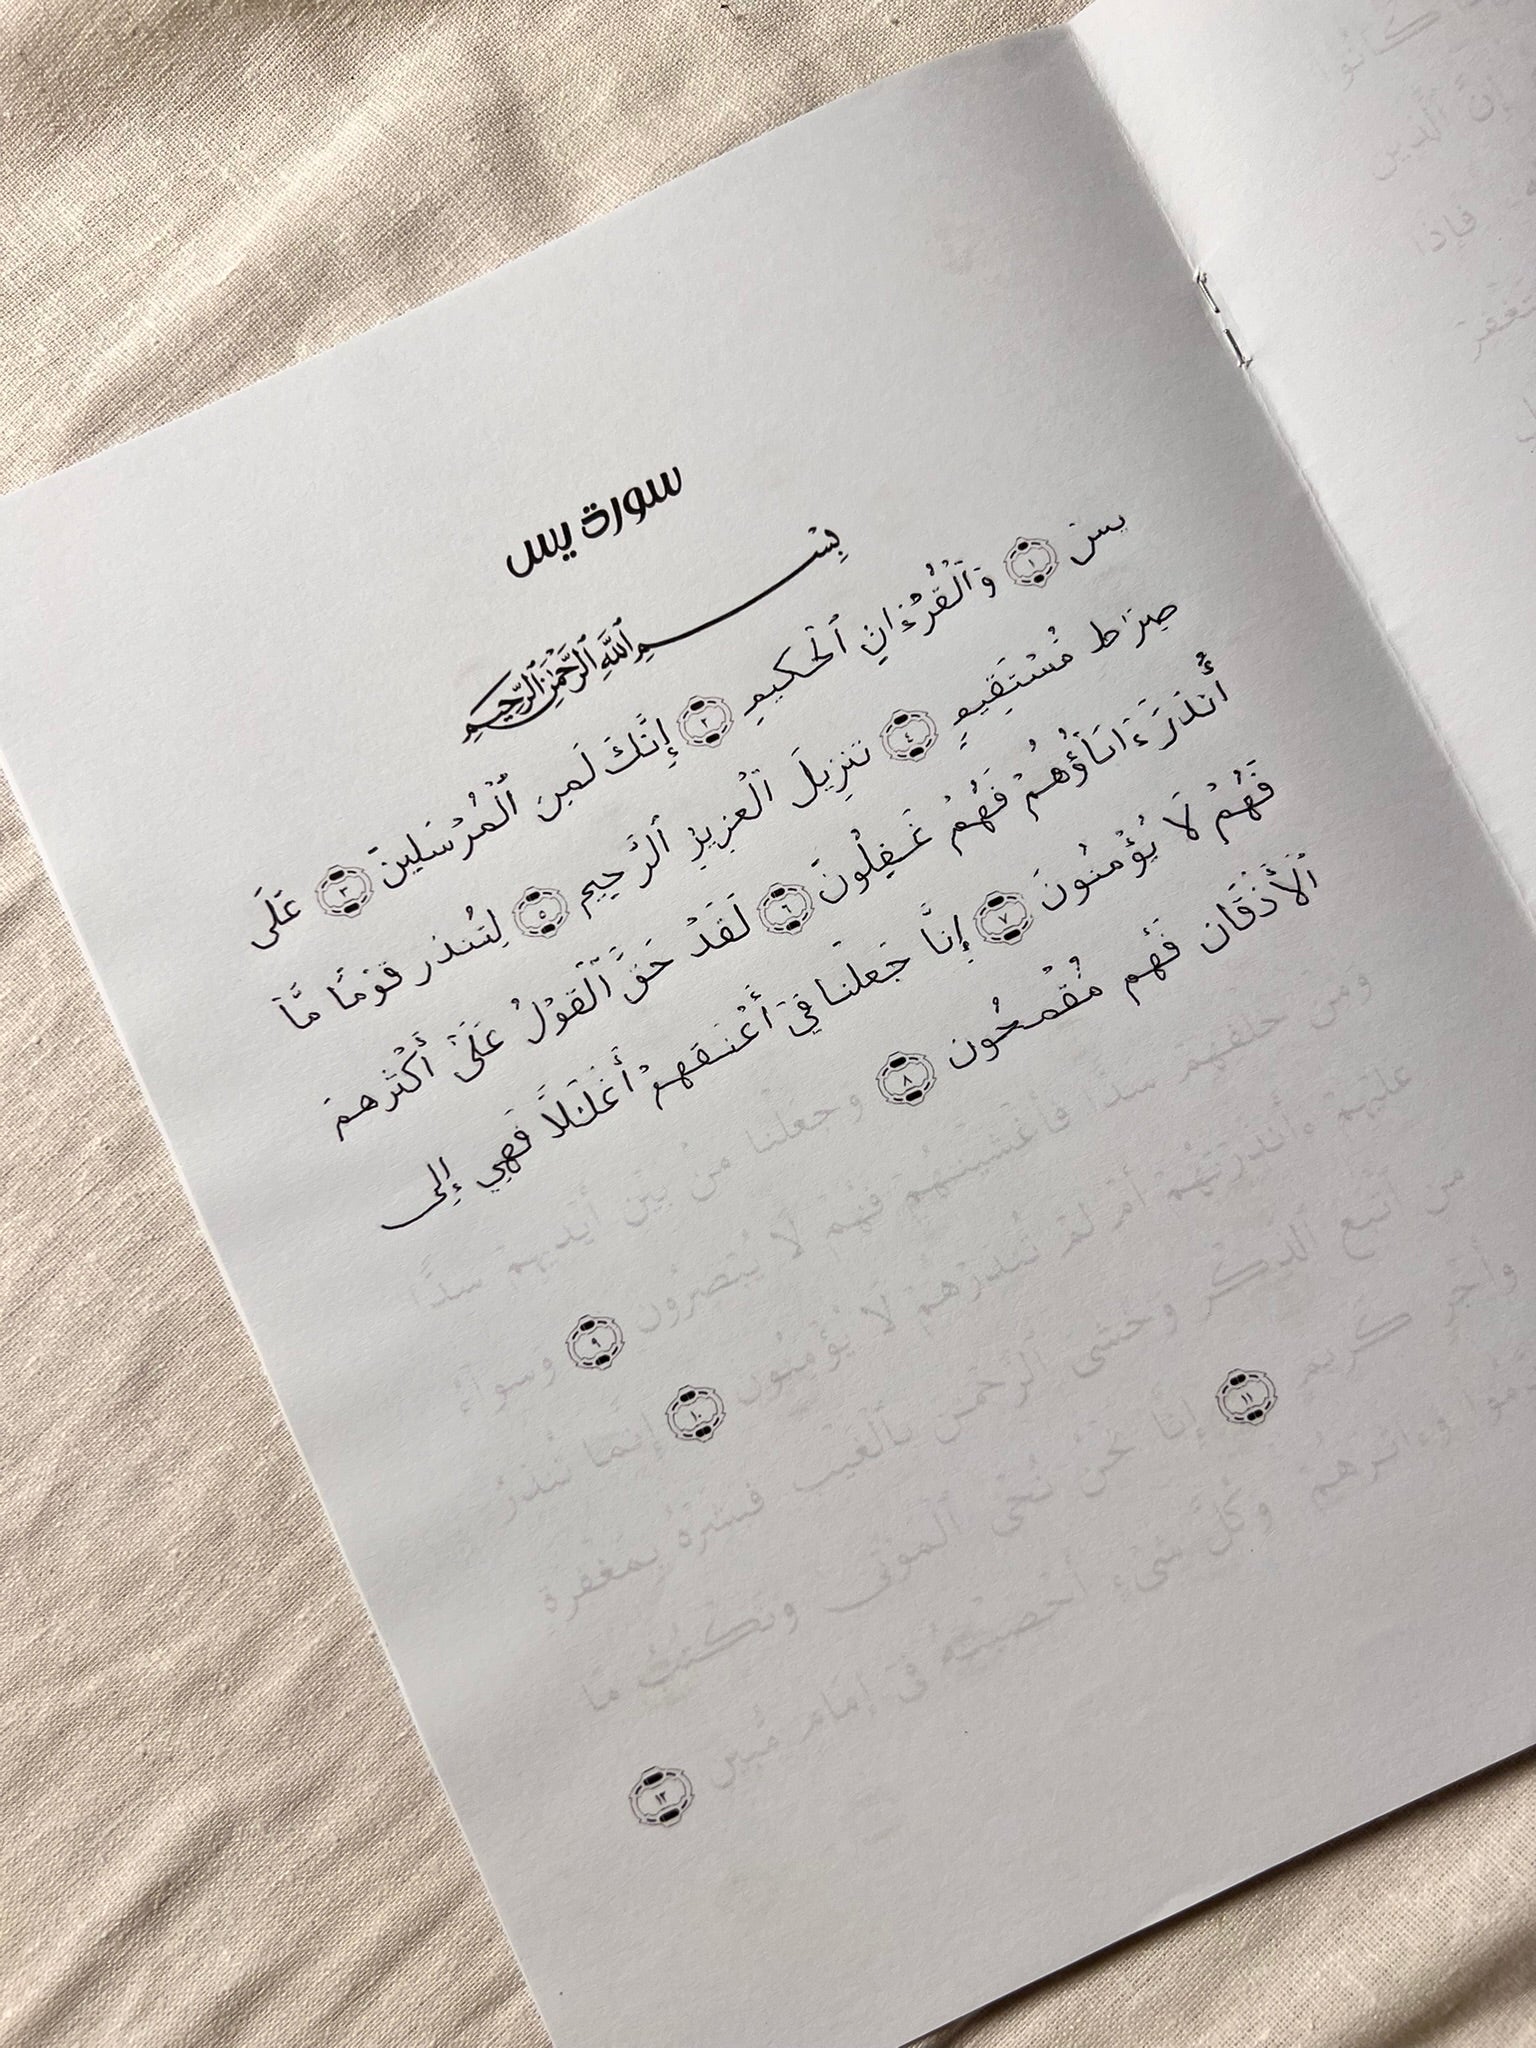 سورة يس
بِسْمِ ٱللَّهِ ٱلرَّحْمَٰنِ ٱلرَّحِيمِ
يس ١ وَٱلْقُرْءَانِ ٱلْحَكِيمِ ٢ إِنَّكَ لَمِنَ ٱلْمُرْسَلِينَ ٣ عَلَى
صِرَاط مُسْتَقِيمٍ ٤ تَنزِيلَ ٱلْعَزِيزِ ٱلرَّحِيمِ ٥ لِتُنذر قَوْمًا مَّا
أُنذَرَ ءَابَاؤُهُمْ فَهُمْ غَفِلُونَ ٦ لَقَدْ حَقَّ ٱلْقَوْلُ عَلَىٰ أَكْثَرِهمْ
فَهُمْ لَا يُؤْمنُونَ ٧ إِنَّا جَعلنَا فِيٓ أَعْنَقهمْ أَغْلَلًا فَهِي إِلى
ٱلْأَذْقَان فَهُم مُّقْمحُون ٨ وجعلْنا منْ بيْن أَيْديهمْ سدًّا
ومنْ خلْفهمْ سدًّا فأغْشينهُمْ فهُمْ لا يُبْصرُون ٩ وسوآءٌ
عليْهمْ ءأنذرْتهُمْ أمْ لمْ تُنذرْهُمْ لا يُؤْمنُون ١٠ إنّما تُنذرُ
من ٱتّبع ٱلذّكْر وخشى ٱلرّحْمن بٱلْغيْب فبشّرْهُ بمغْفرةٍ
وأجْرٍ كريمٍ ١١ إنّا نحْنُ نُحْى ٱلْموْتى ونكْتُبُ ما
قدّمُوا وءاثرهُمْ وكُلّ شىْءٍ أحْصيْنهُ فى إمامٍ مُّبينٍ ١٢
كانُوا
إنّ ٱلّذين
فإذا